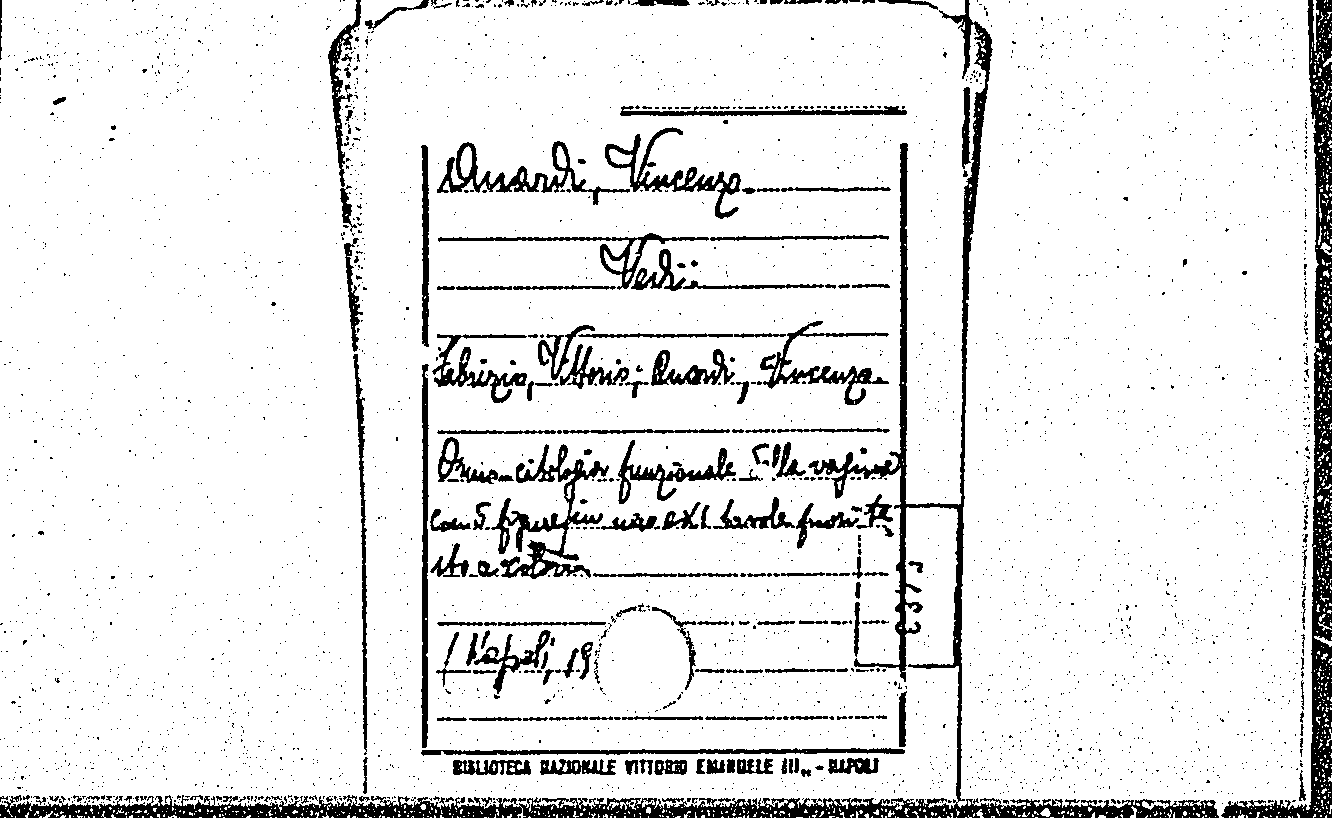 Quardi, Vincenzo.
Vedi:
Fabrizio, Vittorio; Quardi, Vincenzo.
citologia funzionale della vagina
con 5 figure in nero e XI tavole fuori te
sto a colori
Napoli, 19
BIBLIOTECA NAZIONALE VITTORIO EMANUELE III,, - NAPOLI